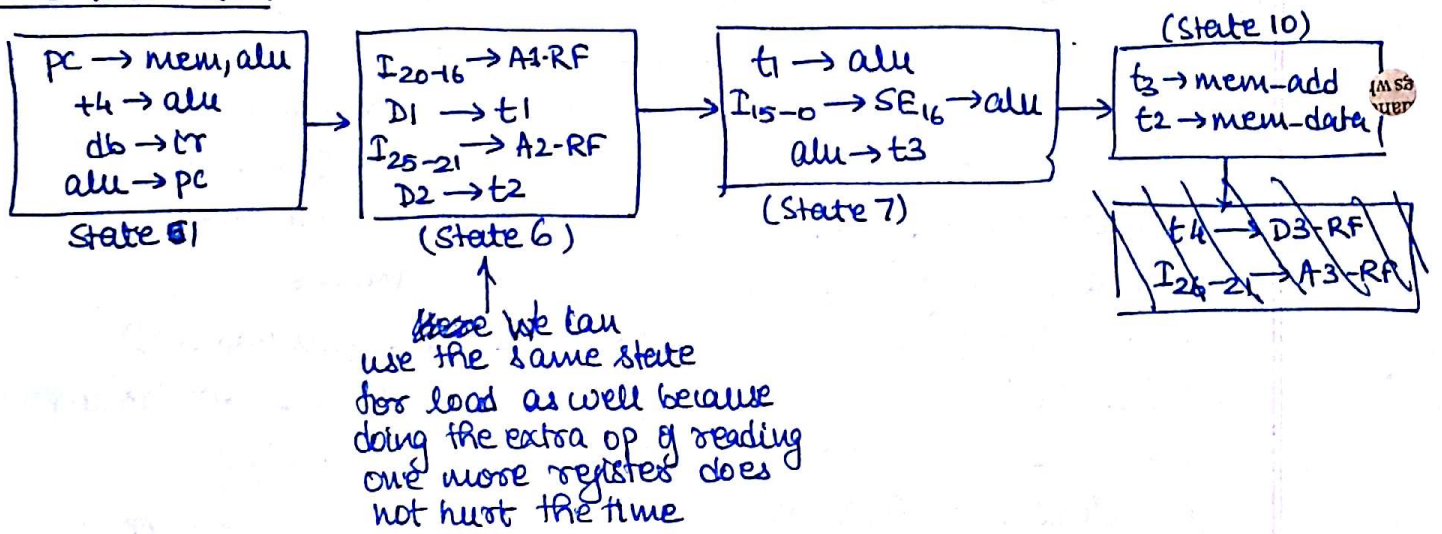 pc → mem, alu
t4 → alu
db → tr
alu → pc
State 1
I20-16 → A1-RF
D1 → t1
I25-21 → A2-RF
D2 → t2
(State 6)
we can
use the same state
for load as well because
doing the extra op of reading
one more register does
not hurt the time
t1 → alu
I15-0 → SE16 → alu
alu → t3
(State 7)
(State 10)
t3 → mem-add
t2 → mem-data
t4 → D3-RF
→ A3-RF